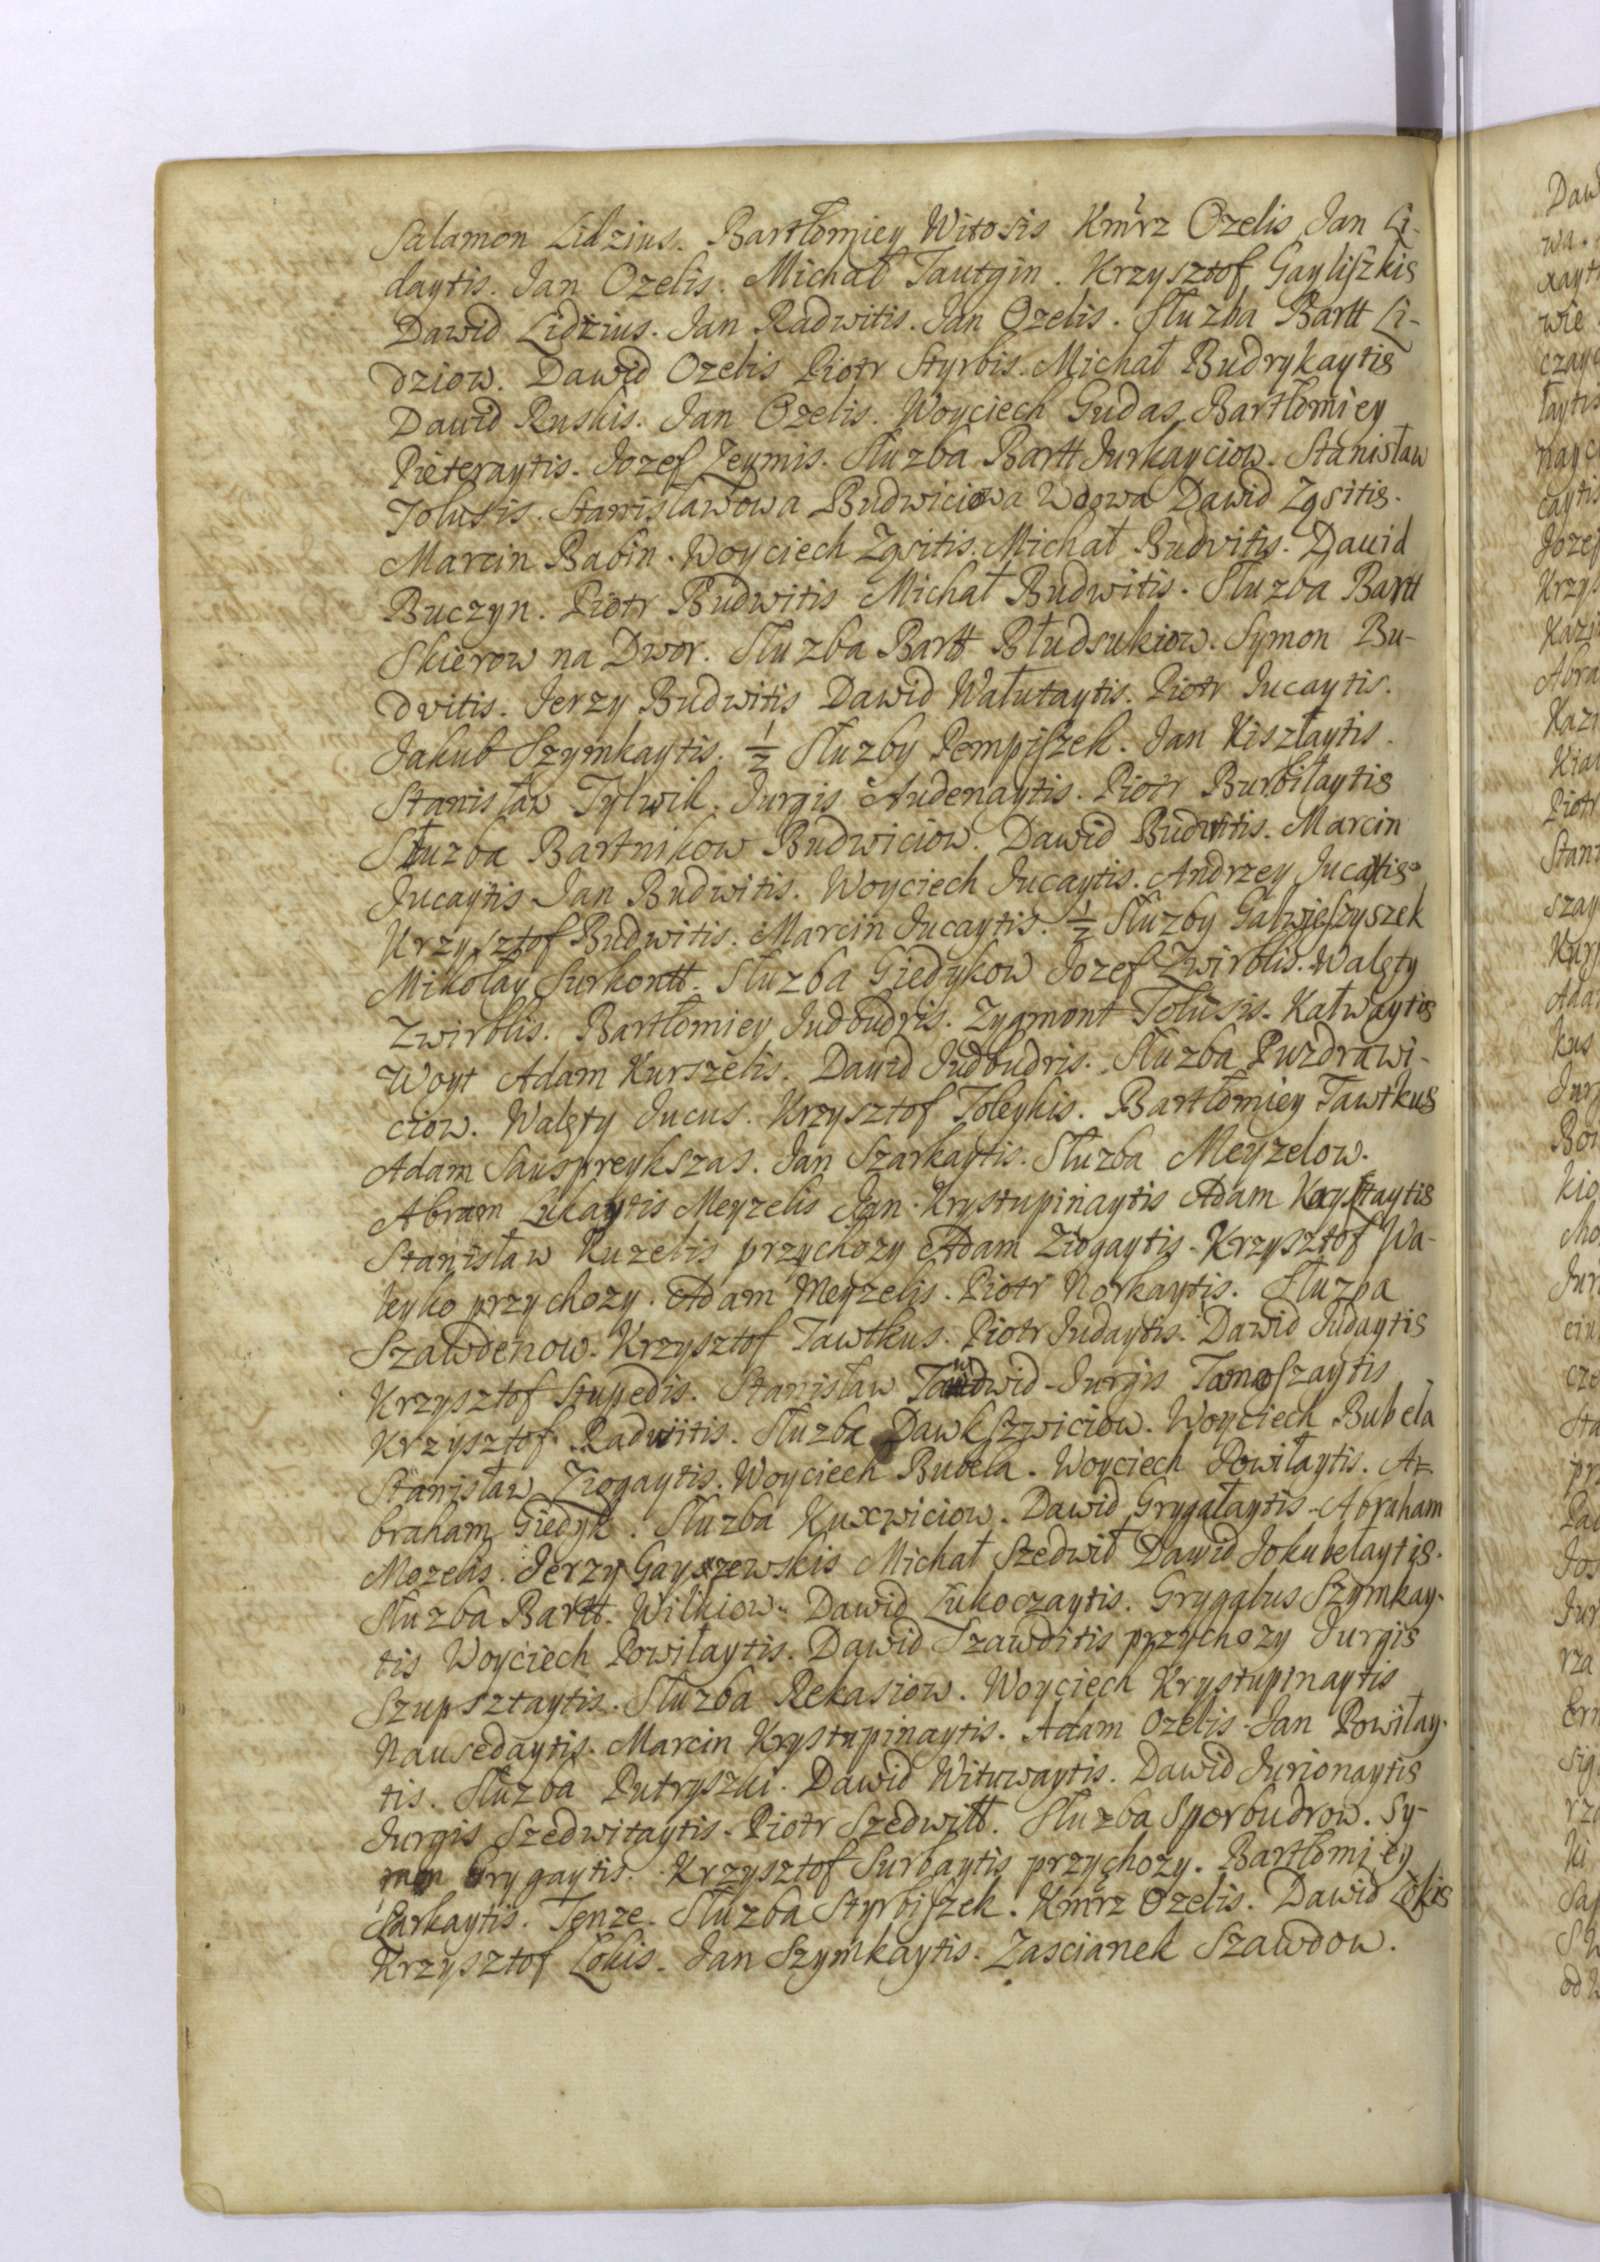 Salamon Lidzius. Bartłomiey Witosis Kmrz Ozelis Jan Li-
daytis. Jan Ozelis. Michał Tautgin. Krzysztof Gayliszkis
Dawid Lidzius. Jan Radwitis. Jan Ozelis. Słuzba Bartt Li-
dziow. Dawid Ozelis Piotr Styrbis. Michał Budrykaytis
Dawid Ruskis. Jan Ozelis. Woyciech Gudas Bartłomiey
Pieteraytis. Jozef Zeymis. Słuzba Bartt Jurkayciow. Stanisław
Tolusis. Stanisławowa Budwiciowa Wdowa Dawid Zgsitis.
Marcin Babin. Woyciech Zgsitis. Michał Budvitis. Dawid
Buczyn. Piotr Budwitis Michał Budwitis. Słuzba Bartt
Skierow na Dwor. Słuzba Bartt Błudsukiow. Symon Bu-
dvitis. Jerzy Budwitis Dawid Wałutaytis. Piotr Jucaytis.
Jakub Szymkaytis. 1/2 Słuzby Pempiszek. Jan Kisztaytis.
Stanisław Tylwik. Jurgis Nudenaytis. Piotr Burbiłaytis
Słuzba Bartnikow Budwiciow. Dawid Budwitis. Marcin
Jucaytis Jan Budwitis. Woyciech Jucaytis. Andrzey Jucaytis
Krzysztof Budwitis. Marcin Jucaytis. 1/2 Słuzby Galwieszyszek
Mikołay Surkontt. Słuzba Giedykow Jozef Zwirblis. Walęty
Zwirblis. Bartłomiey Judbudris. Zygmont Tolusis. Kałwaytis
Woyt Adam Kurszelis. Dawid Judbudris. Słuzba Puzdrawi-
ciow. Walęty Jucus. Krzysztof Toleykis. Bartłomiey Tawtkus
Adam Sauspreykszas. Jan Szarkaytis. Słuzba Meyzelow.
Abram Lukaytis Meyzelis Jan Krystupinaytis Adam
Stanisław Kuzelis przychozy Adam Ziogaytis. Krzysztof Wa-
leyko przychozy. Adam Meyzelis. Piotr Norkaytis. Słuzba
Szawdenow. Krzysztof Tawtkus. Piotr Judaytis. Dawid Judaytis
Krzysztof Stupedis. Stanisław Jurgis Tamoszaytis
Krzysztof Radwitis. Słuzba Dawkszwiciow. Woyciech Bubela
Stanisław Ziogaytis. Woyciech Bubela. Woyciech Powiłaytis. A-
braham Giedyk. Słuzba Kuxwiciow. Dawid Grygałaytis. Abraham
Mozelis. Jerzy Gayszewskis Michał Szedwił Dawid Jokubełaytis.
Słuzba Bartt. Wilkiow. Dawid Lukoczaytis. Grygalus Szymkay-
tis Woyciech Powiłaytis. Dawid Szawditis przychozy Jurgis
Szupsztaytis. Słuzba Rekasiow. Woyciech Krystupinaytis
Nausedaytis. Marcin Krystupinaytis. Adam Ozelis. Jan Powiłay-
tis. Słuzba Putryszki. Dawid Wituwaytis. Dawid Jurionaytis
Jurgis Szedwitaytis. Piotr Szedwitt. Słuzba Sperbudrow. Sy-
mon Grygaytis. Krzysztof Surbaytis przychozy. Bartłomiey
Szarkaytis. Tenze. Słuzba Styrbiszek. Kmrz Ozelis. Dawid Lokis
Krzysztof Lokis. Jan Szymkaytis. Zascianek Szawdow.